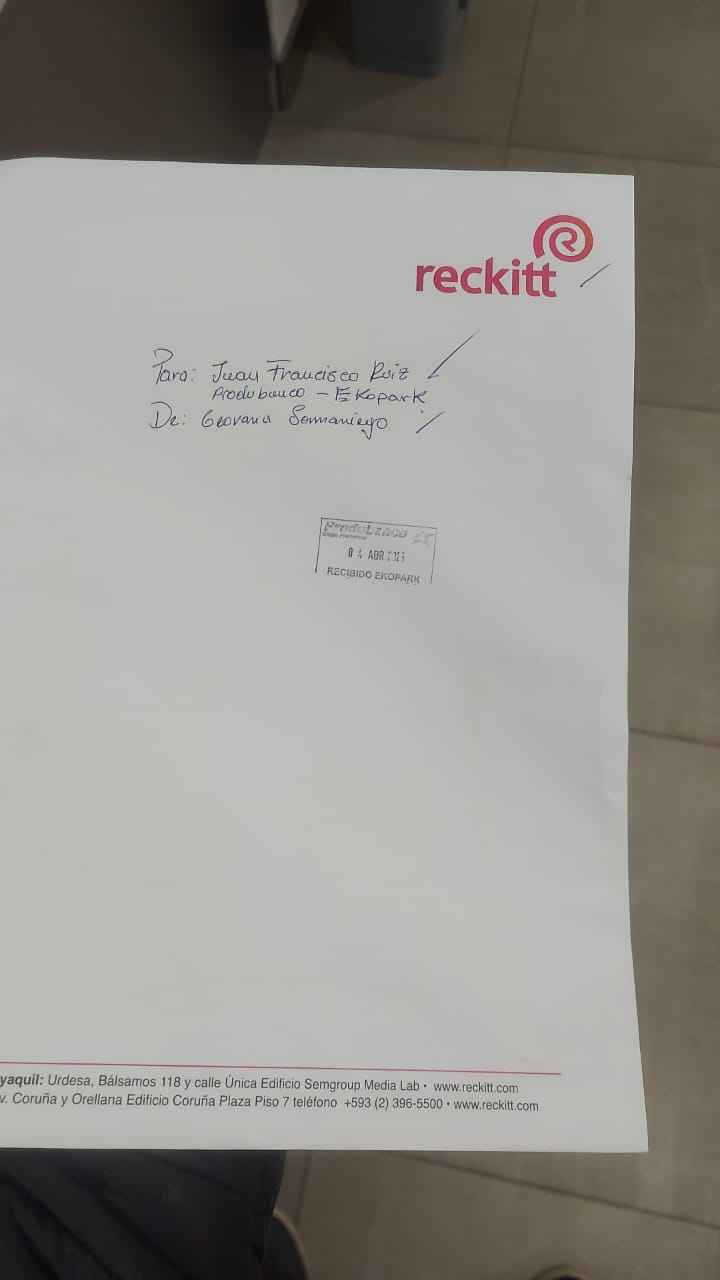 reckitt
Para: Juan Francisco Ruiz
Produbanco - Ekopark
De: Geovana Sammaniego
Produbanco
ABR
RECIBIDO EKOPARK
yaquil: Urdesa, Bálsamos 118 y calle Única Edificio Semgroup Media Lab • www.reckitt.com
v. Coruña y Orellana Edificio Coruña Plaza Piso 7 teléfono +593 (2) 396-5500 • www.reckitt.com